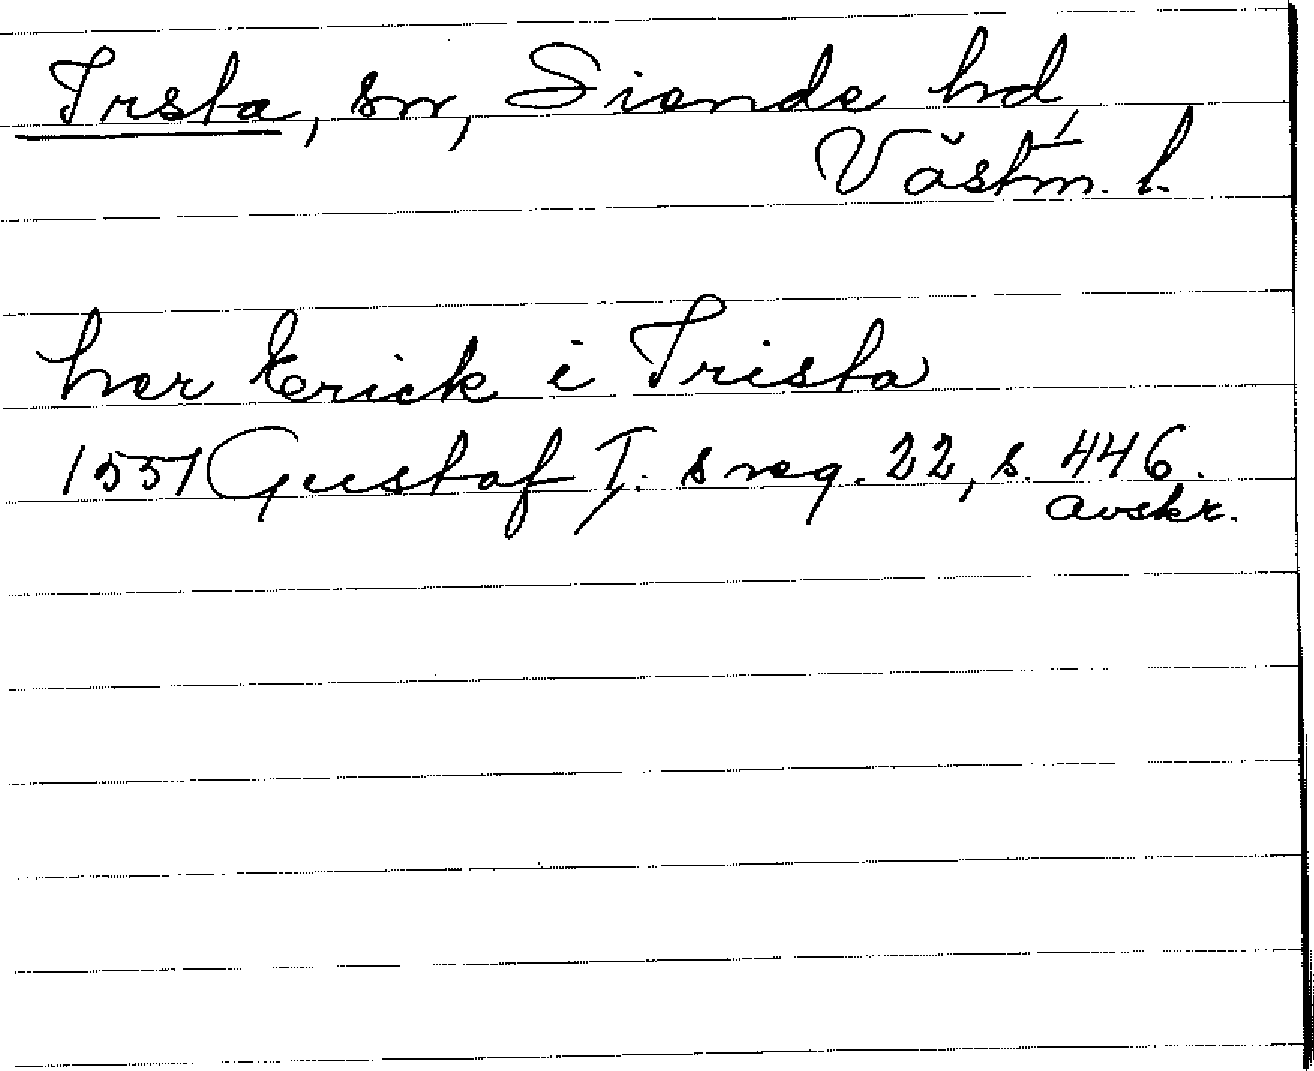 Irsta, sn, Siende hd,
Västm. l.
her Erick i Irista
1551 Gustaf I:s reg. 22, s. 446.
avskr.